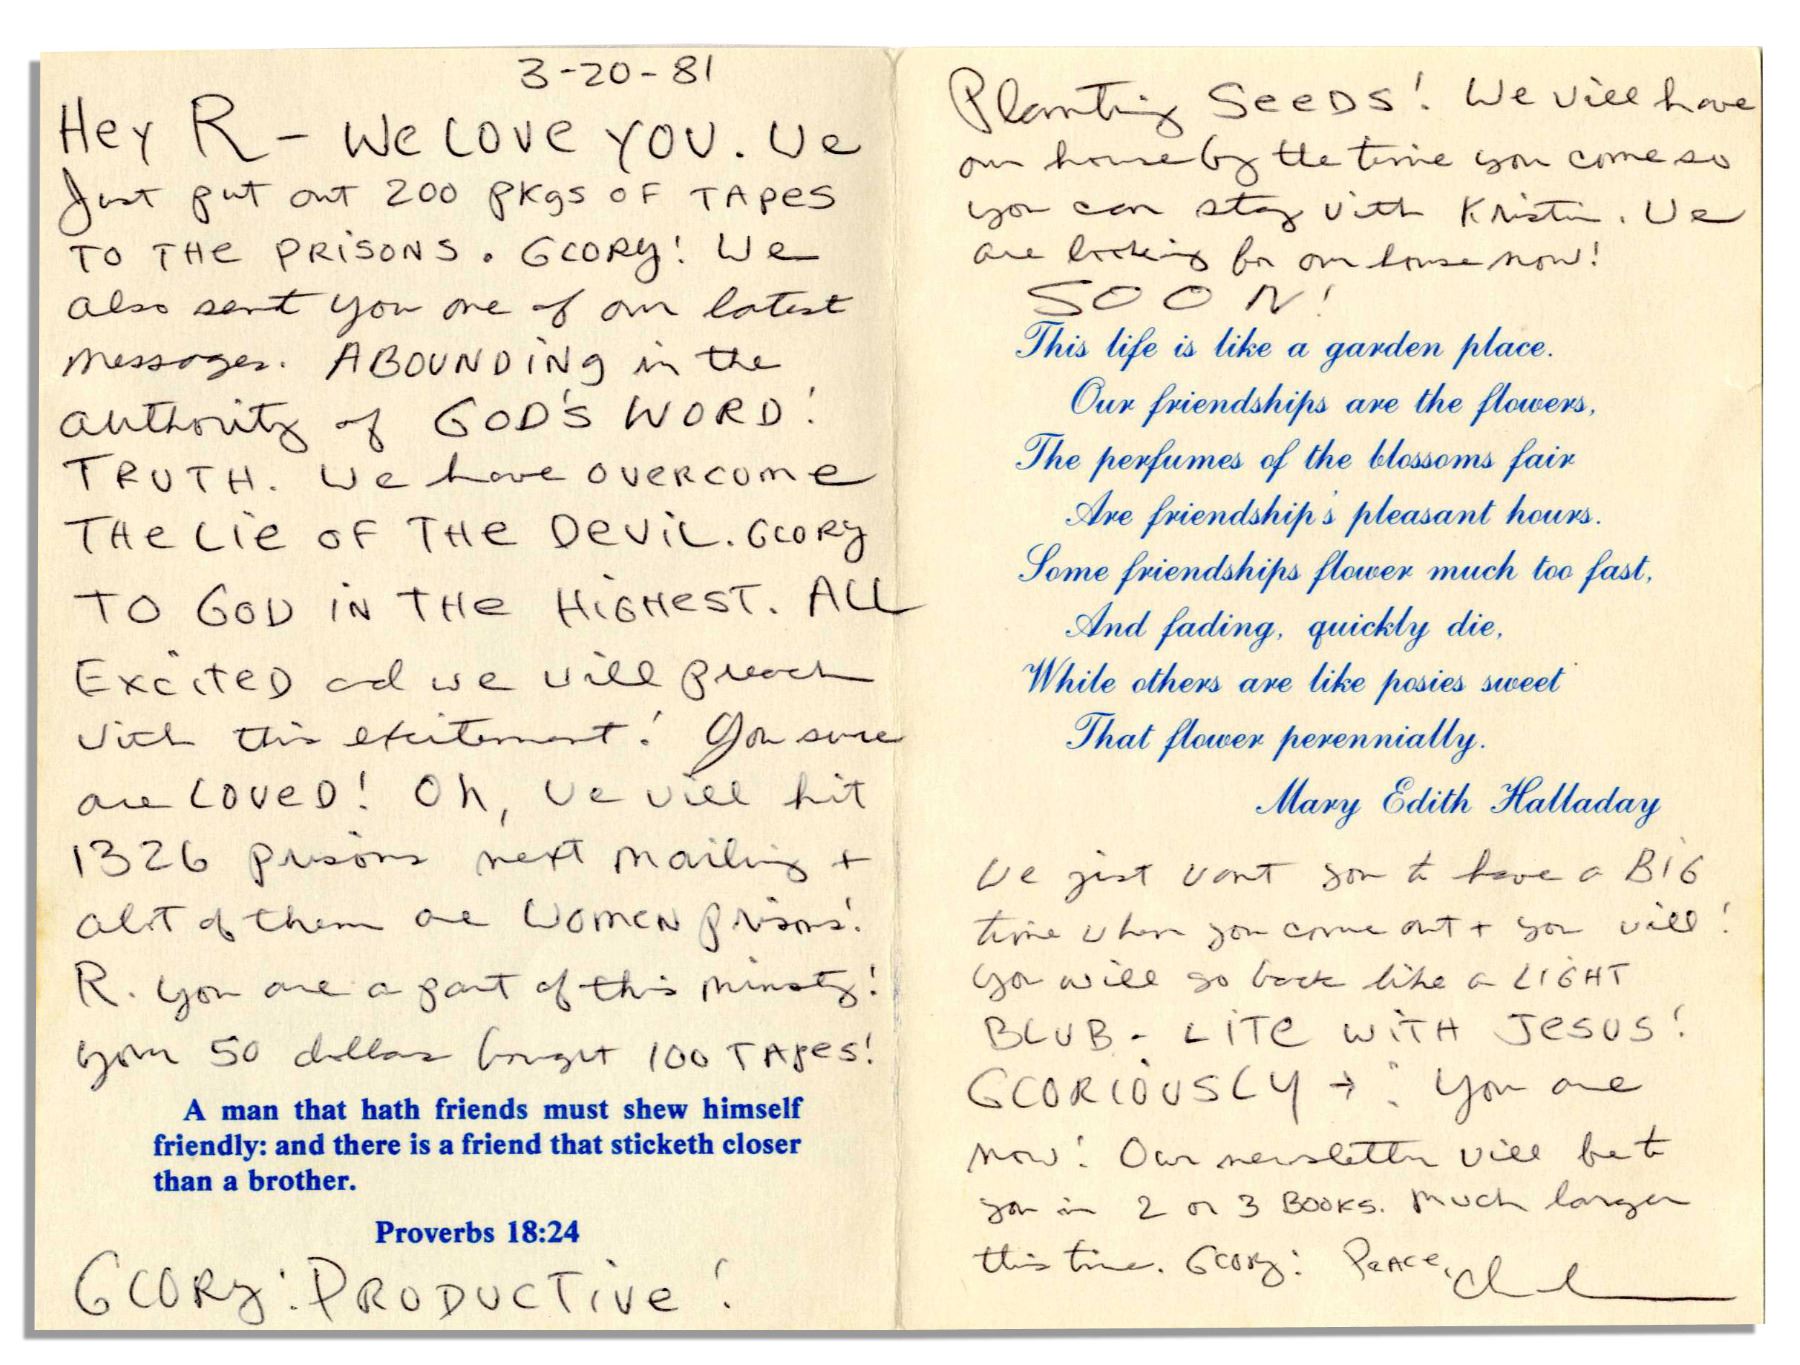 3-20-81
Hey R - We LOVE YOU. We
Just put out 200 pkgs OF TAPES
TO THE PRISONS. GLORY! We
also sent you one of our latest
messages. ABOUNDING in the
authority of GOD'S WORD!
TRUTH. We have OVERCOME
THE LIE OF THE DEVIL. GLORY
TO GOD IN THE HIGHEST. ALL
EXCITED ad we will preach
with this excitement! You sure
are LOVED! Oh, we will hit
1326 prisons next mailing +
alot of them are WOMEN prisons!
R. you are a part of this minsty!
your 50 dollars bought 100 TAPES!
A man that hath friends must shew himself
friendly: and there is a friend that sticketh closer
than a brother.
Proverbs 18:24
GLORY! PRODUCTIVE!
Planting SEEDS! We will have
our house by the time you come so
you can stay with Kristin. We
are looking for our house now!
SOON!
This life is like a garden place.
Our friendships are the flowers,
The perfumes of the blossoms fair
Are friendship's pleasant hours.
Some friendships flower much too fast,
And fading, quickly die,
While others are like posies sweet
That flower perennially.
Mary Edith Halladay
We just want you to have a BIG
time when you come out + you will!
You will go back like a LIGHT
BLUB - LITE WITH JESUS!
GLORIOUSLY → ! You are
now! Our newsletter will be to
you in 2 or 3 BOOKS. Much larger
this time. Glory! PEACE,